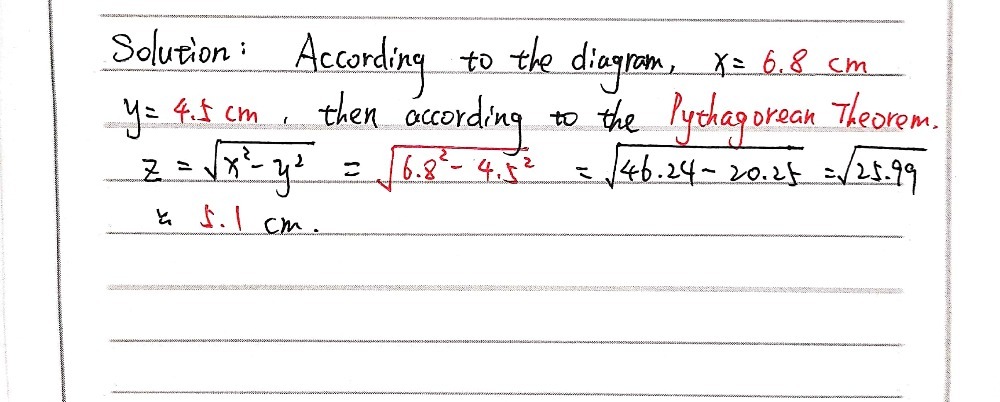 Solution: According to the diagram, x= 6.8 cm
y= 4.5 cm, then according to the Pythagorean Theorem.
z = √x²-y² = √6.8²-4.5² = √46.24-20.25 =√25.99
≈ 5.1 cm.